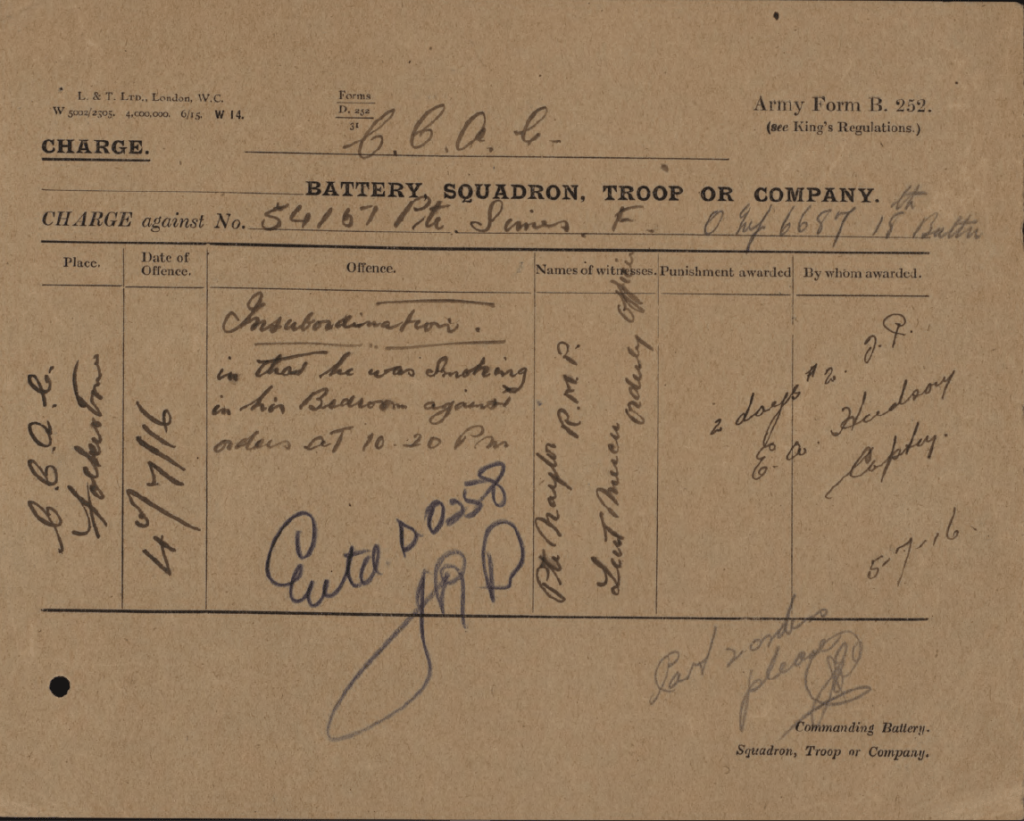 L. & T. LTD., LONDON, W.C.
W 5002/2505. 4,000,000. 6/15. W 14.
Forms
D. 252
31
Army Form B. 252.
(see King's Regulations.)
CHARGE.
C. C. A. C.
BATTERY, SQUADRON, TROOP OR COMPANY.
CHARGE against No. 54167 Pte. Simes. F. 18th Battn
Place.
Date of Offence.
Offence.
Names of witnesses.
Punishment awarded
By whom awarded.
C. C. A. C.
Folkestone
4/7/16
Insubordination.
in that he was Smoking
in his Bedroom against
orders AT 10.20 Pm
Pte Naylor R.M.P.
Orderly Officer
2 days #2. F.P.
E. A. Hudson
5-7-16.
Entd D 0258
Part 2 orders
please
Commanding Battery.
Squadron, Troop or Company.